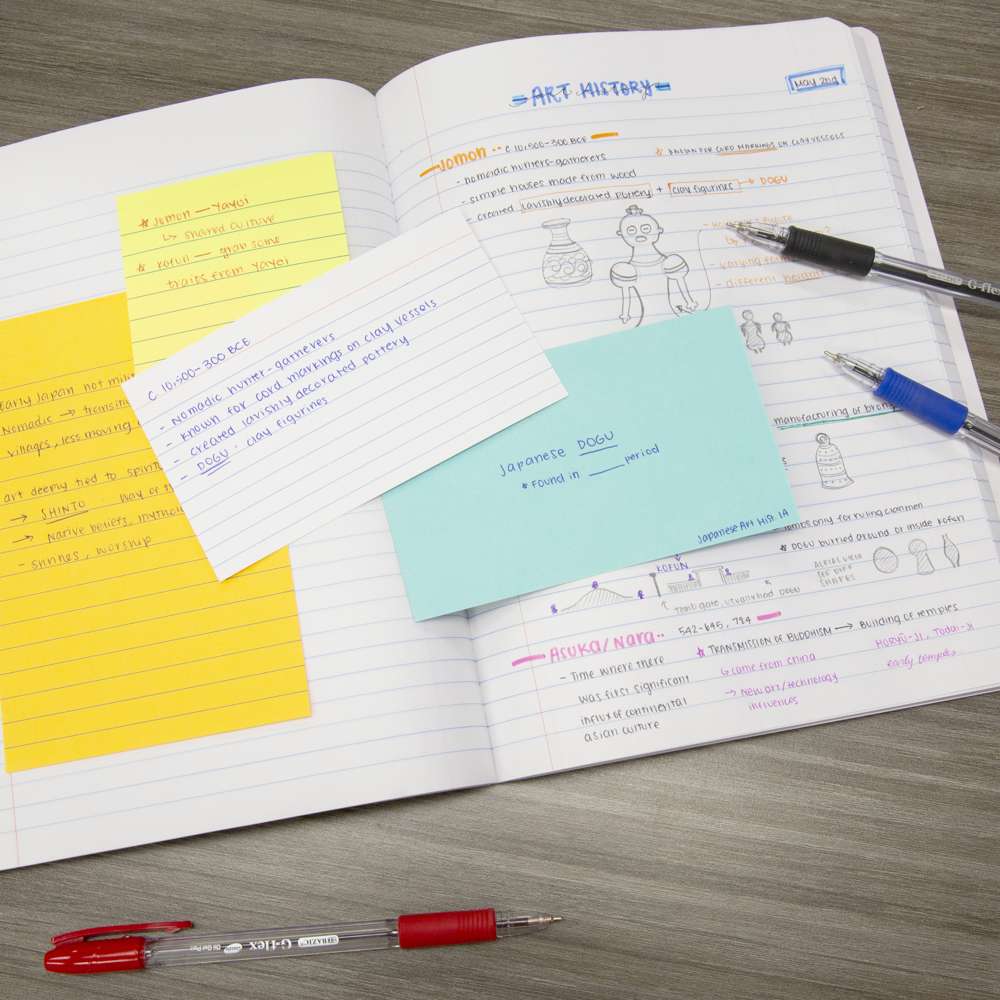 * Jomon — Yayoi
↳ shared culture
* Kofun — grab some
traits from Yayoi
Early Japan not
Nomadic →
villages, less moving
art deeply tied to
→ SHINTO
→ Native beliefs,
- shrines, worship
C 10,500-300 BCE
- Nomadic hunter-gatherers
- Known for cord markings on clay vessels
- created lavishly decorated pottery
- DOGU - clay figurines
Japanese DOGU
* Found in ____ period
Japanese Art Hist. 1A
ART HISTORY
May 2nd
Jomon ·· C 10,500-300 BCE
- nomadic hunters-gatherers
* KNOWN FOR CORD MARKINGS ON CLAY VESSELS
- simple houses made from wood
- created lavishly decorated pottery + clay figurines → DOGU
- different
manufacturing of bronze
only for ruling clanmen
* DOGU buried around or inside Kofun
AERIAL VIEW
OF DIFF
SHAPES
KOFUN
Tomb gate, usually had DOGU
Asuka/Nara ·· 542-645, 784
- Time where there
was first significant
influx of continental
asian culture
* TRANSMISSION OF BUDDHISM → Building of temples
↳ came from China
→ New art/technology
influences
HORYU-JI, Todai-ji
early temples
G-flex
BAZIC G-flex Oil Gel Pen